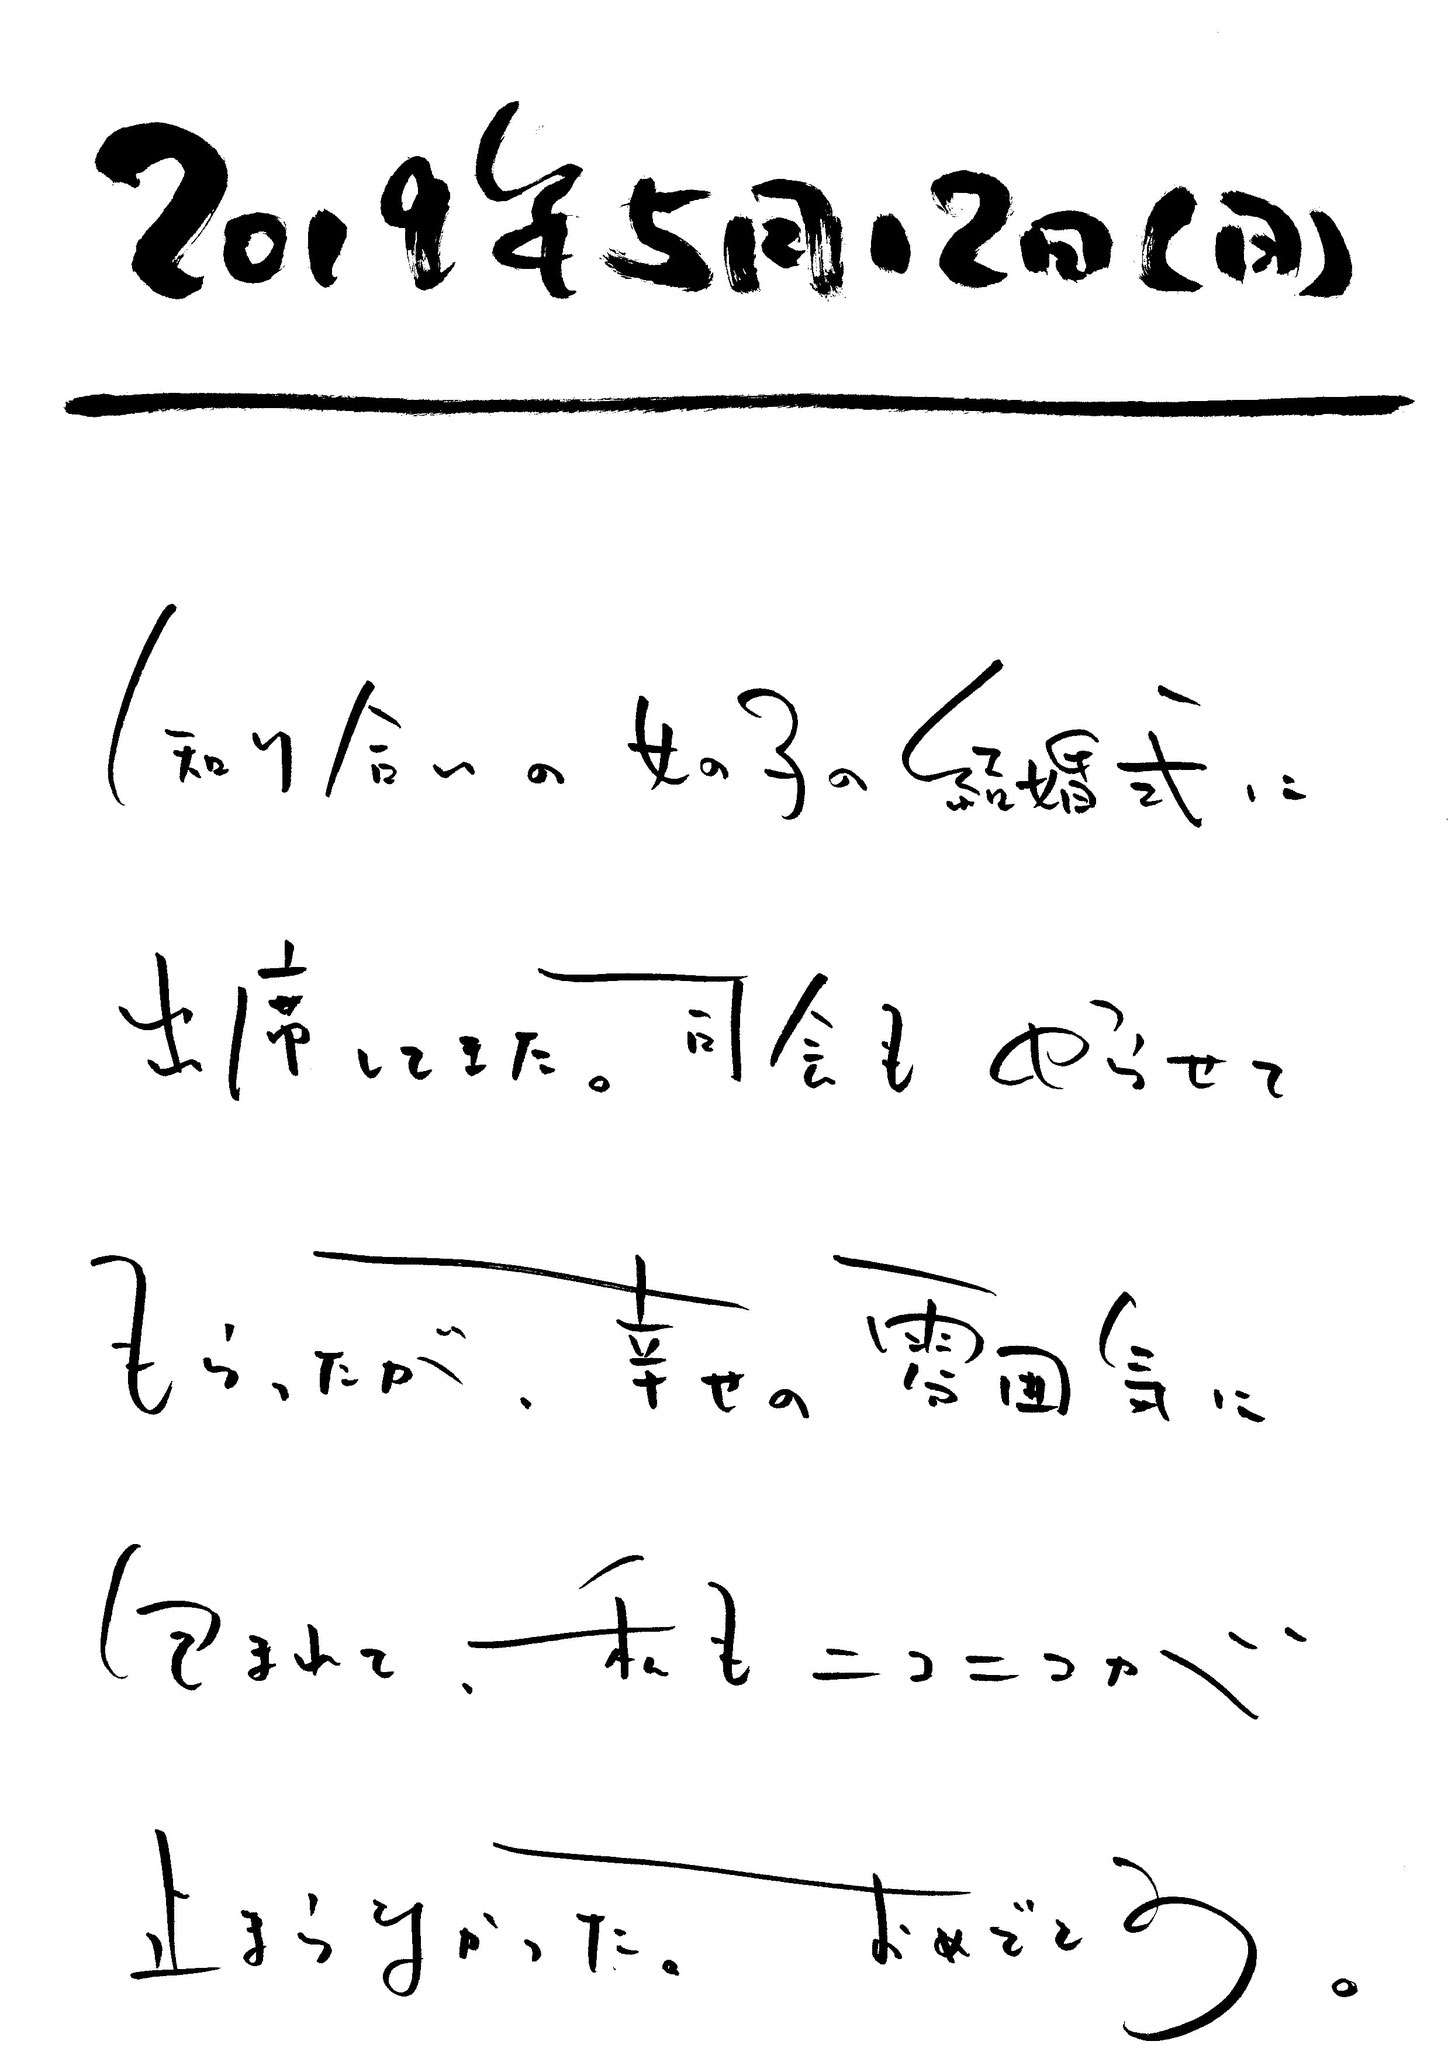 2019年5月12日(日)
知り合いの女の子の結婚式に
出席してきた。司会もやらせて
もらったが、幸せの雰囲気に
包まれて、私もニコニコが
止まらなかった。おめでとう。